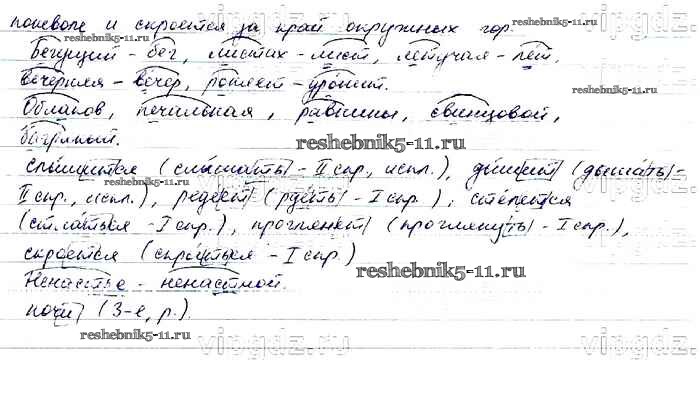 поневоле и скроется за край окружных гор. reshebnik5-11.ru
Бегущий - бег, листах - лист, летучая - лёт, reshebnik5-11.ru
вечерняя - вечер, роняет - уронит. reshebnik5-11.ru
Облаков, печальная, равнины, свинцовой,
багряный. reshebnik5-11.ru
слышится (слышать - II спр., искл.), дышит (дышать -
II спр., искл.), редеет (редеть - I спр.), стелется
(стлаться - I спр.), проглянет (проглянуть - I спр.),
скроется (скрыться - I спр.)
Ненастье - ненастной. reshebnik5-11.ru
ночи (3-е, р.).
reshebnik5-11.ru
vipgdz.ru